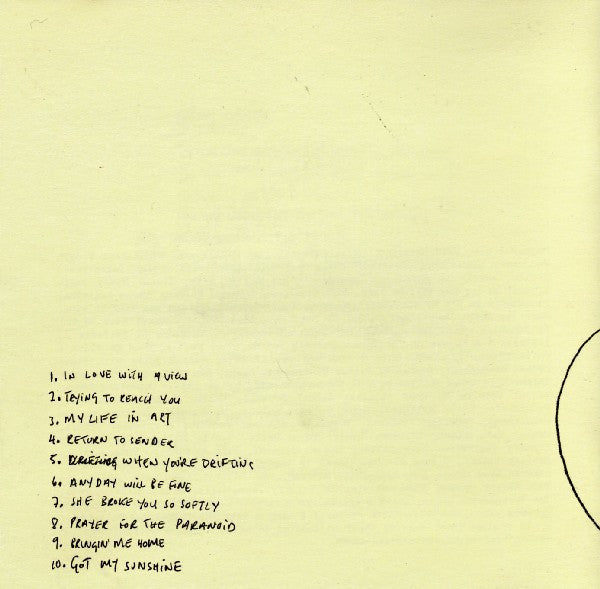 1. IN LOVE WITH A VIEW
2. TRYING TO REACH YOU
3. MY LIFE IN ART
4. RETURN TO SENDER
5. WHEN YOU'RE DRIFTING
6. ANY DAY WILL BE FINE
7. SHE BROKE YOU SO SOFTLY
8. PRAYER FOR THE PARANOID
9. BRINGIN' ME HOME
10. GOT MY SUNSHINE